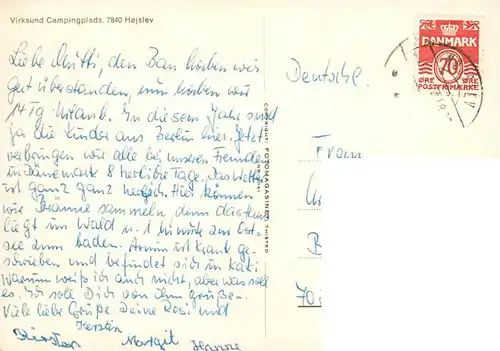 Virksund Campingplads, 7840 Højslev
Liebe Mutti, den Bau haben wir
gut überstanden, nun haben wir
14 Tg. Urlaub. In diesem Jahr sind
ja die Kinder aus Berlin hier. Jetzt
verbringen wir alle bei unseren Freunden
in Dänemark 8 herrliche Tage. Das Wetter
ist ganz ganz herrlich. Hier können
wir Bräune sammeln, denn das Haus
liegt im Wald u. 1 Minute zur Ost-
see zum baden. Armin ist krank ge-
schrieben und befindet sich in
warum weiß ich auch nicht, aber was soll
es. Ich soll Dich von ihm grüßen.
Viele liebe Grüße Deine Rosi und
Kerstin
Margit Hanne
COPYRIGHT: FOTOMAGASINET THISTED
DANMARK
70
ØRE ØRE
POSTFRIMÆRKE
Deutschl.
Fram
70